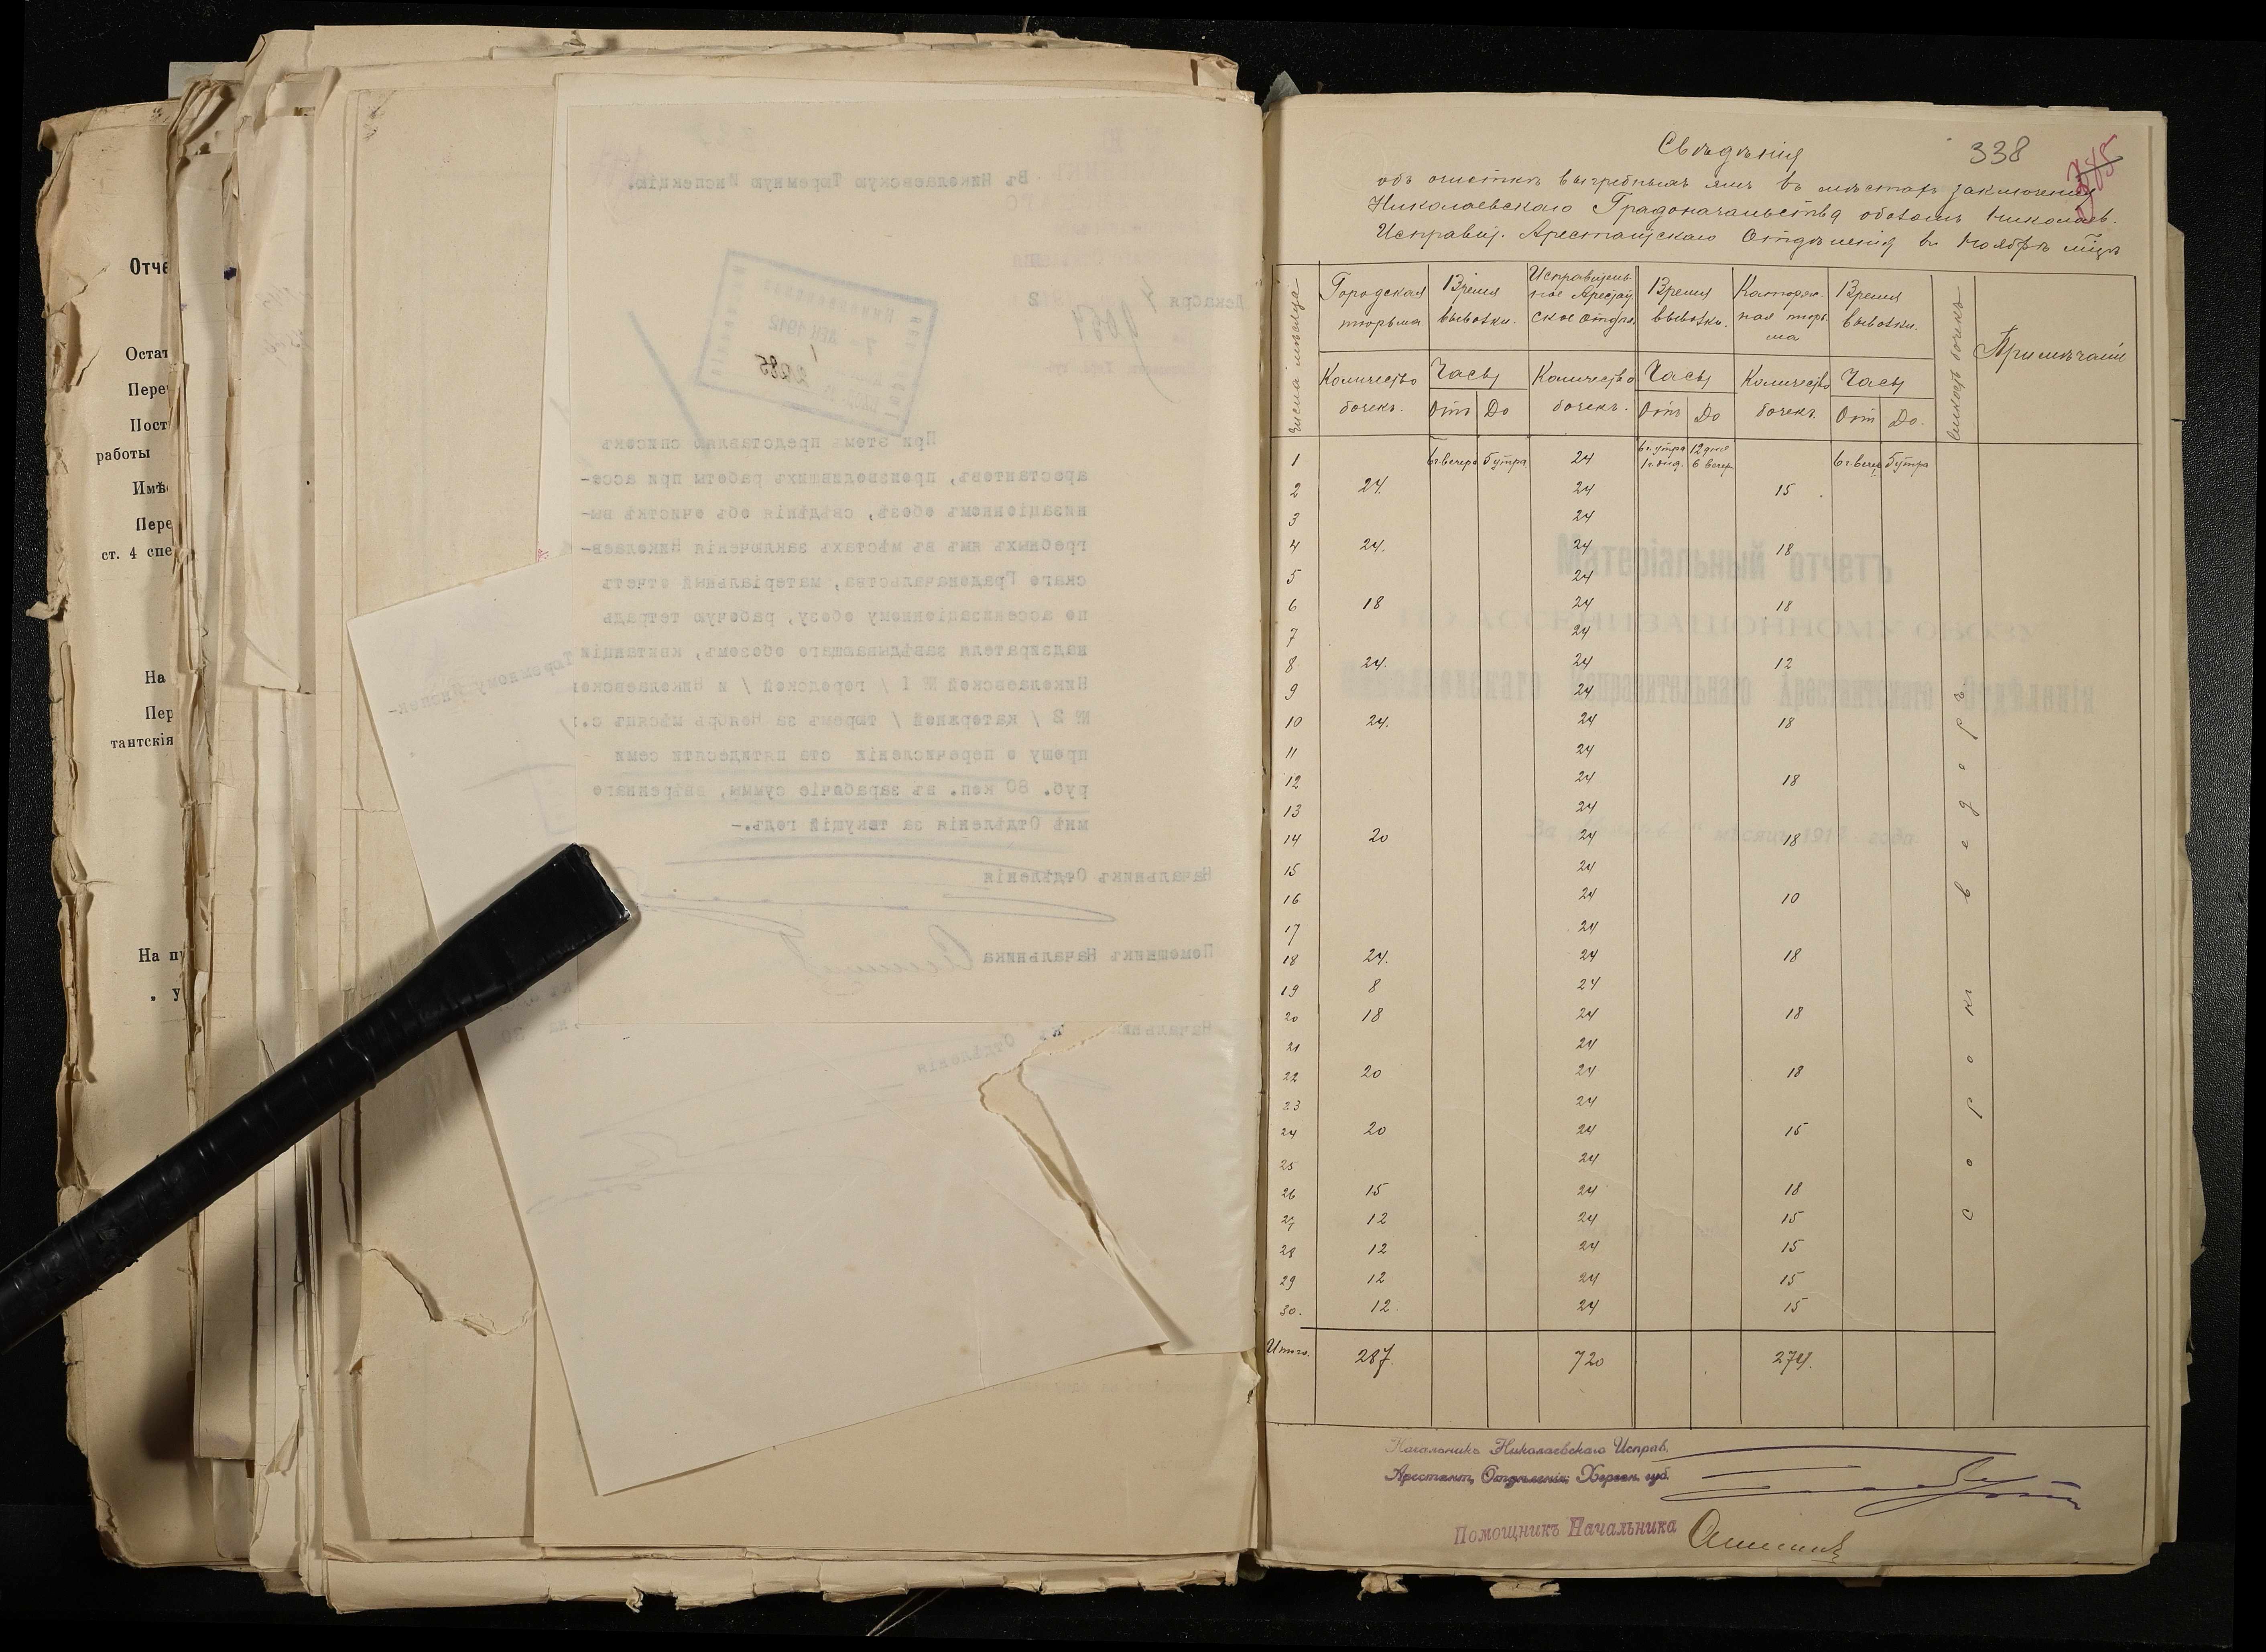 Отче
Остат
Пере
Пост
работы
Имѣ
Пере
ст. 4 спе
На
Пер
тантскія
На п
Въ Николаевскую Тюремную Инспекцію.
Декабря 7 2
При этомъ представляю списокъ
арестантовъ, производившихъ работы при ассе-
низаціонномъ обозѣ, свѣдѣнія объ очисткѣ вы-
гребныхъ ямъ въ мѣстахъ заключенія Николаев-
скаго Градоначальства, матеріальный отчетъ
по ассенизаціонному обозу, рабочую тетрадь
надзирателя завѣдывающаго обозомъ, квитанціи
Николаевской № 1 / городской / и Николаевской
№ 2 / каторжной / тюремъ за Ноябрь мѣсяцъ с.г.
прошу о перечисленіи ста пятидесяти семи
руб. 80 коп. въ заработіе суммы, ввѣреннаго
мнѣ Отдѣленія за текущій годъ.-
Начальникъ Отдѣленія
Помощникъ Начальника
338
Свѣдѣнія
объ очисткѣ выгребныхъ ямъ въ мѣстахъ заключенія
Николаевскаго Градоначальства обозомъ Николаев.
Исправит. Арестантскаго Отдѣленія въ Ноябрѣ м-цѣ
Числа мѣсяца Городская тюрьма Время вывозки. Исправитель- ное Арестант- ское Отдѣл. Время вывозки. Каторж- ная тюрь- ма Время вывозки. Емкость бочекъ Примѣчаніе
Количество бочекъ. Часы Количество бочекъ. Часы Количество бочекъ. Часы
Отъ До Отъ До От До.
1 6 ч. вечера 5 утра 24 6 ч. утра 12 дня 6 ч. вечер 5 утра
1 ч. дня. 6 вечер.
2 24. 24 15
3 24
4 24. 24 18
5 24
6 18 24 18
7 24
8 24. 24 12
9 24
10 24. 24 18
11 24
12 24 18
13 24
14 20 24 18
15 24
16 24 10
17 24
18 24. 24 18
19 8 24
20 18 24 18
21 24
22 20 24 18
23 24
24 20 24 15
25 24
26 15 24 18
27 12 24 15
28 12 24 15
29 12 24 15
30. 12 24 15
сорокъ ведеръ
Итого. 287. 720 274.
Начальникъ Николаевскаго Исправ.
Арестант. Отдѣленія Херсон. губ.
Помощникъ Начальника
Матеріальный отчетъ
ПО АССЕНИЗАЦІОННОМУ ОБОЗУ
Николаевскаго Исправительнаго Арестантскаго Отдѣленія